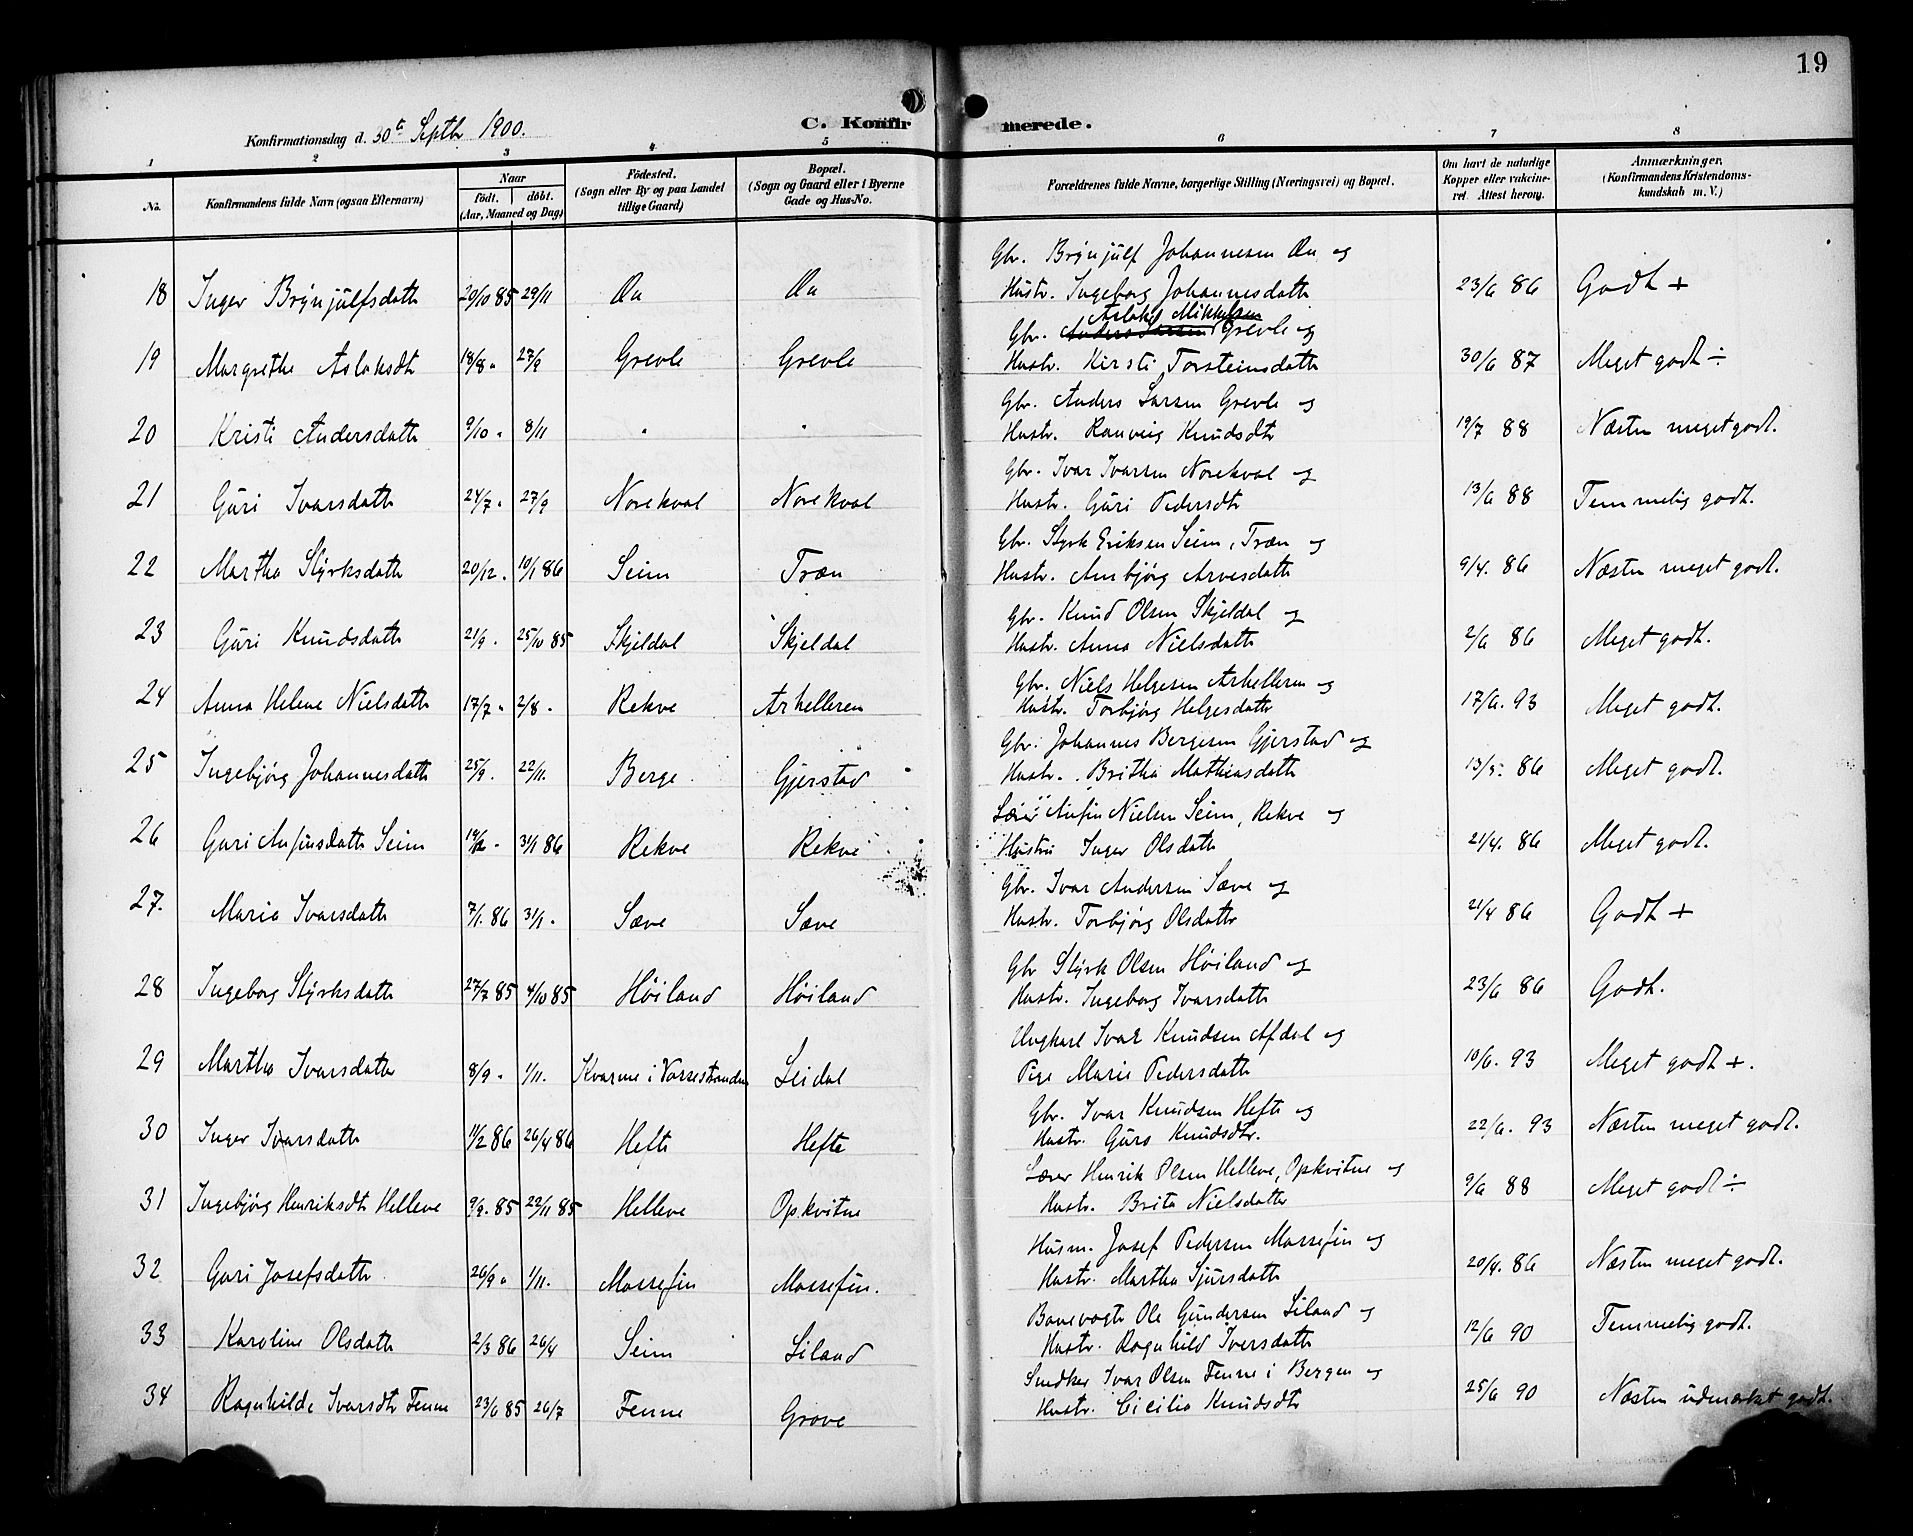 19
Konfirmationsdag d. 30te Septbr 1900. C. Konfirmerede.
1 2 3 4 5 6 7 8
No. Konfirmandens fulde Navn (ogsaa Efternavn) Naar født. døbt. (Aar, Maaned og Dag) Fødested. (Sogn eller By og paa Landet tillige Gaard) Bopæl. (Sogn og Gaard eller i Byerne Gade og Hus-No. Forældrenes fulde Navne, borgerlige Stilling (Næringsvei) og Bopæl. Om havt de naturlige Kopper eller vakcineret. Attest herom. Anmærkninger. (Konfirmandens Kristendomskundskab m. V.)
Gbr. Brynjulf Johannesen Øen og
18 Inger Brynjulfsdattr 20/10 85 29/11 Øen Øen Hustr. Ingeborg Johannesdattr 23/6 86 Godt +
Aslak Mikkelsen
Gbr. Anders Larsen Grevle og
19 Margrethe Aslaksdt 18/8 " 27/9 Grevle Grevle Hustr. Kirsti Torsteinsdattr 30/6 87 Meget godt ÷
Gbr. Anders Larsen Grevle og
20 Kristi Andersdattr 9/10 " 8/11 " " Hustr. Ranveig Knudsdtr 19/7 88 Næsten meget godt.
Gbr. Ivar Ivarsen Norekval og
21 Guri Ivarsdattr 24/7 " 27/9 Norekval Norekval Hustr. Guri Pedersdtr 13/6 88 Temmelig godt.
Gbr. Styrk Eriksen Seim, Træn og
22 Martha Styrksdattr 20/12 " 10/1 86 Seim Træn Hustr. Ambjørg Arvesdattr 9/4. 86 Næsten meget godt.
Gbr. Knud Olsen Skjeldal og
23 Guri Knudsdattr 21/9 " 25/10 85 Skjeldal Skjeldal Hustr. Anna Nielsdattr 2/6 86 Meget godt.
Gbr. Niels Helgesen Arhelleren og
24 Anna Helene Nielsdattr 17/7 " 2/8 " Rekve Arhelleren Hustr. Torbjørg Helgesdattr 17/6. 93 Meget godt.
Gbr. Johannes Bergesen Gjerstad og
25 Ingebjørg Johannesdattr 25/9 " 22/11. Berge Gjerstad Hustr. Britha Mathiasdattr 13/5. 86 Meget godt.
Lærer Anfin Nielsen Seim, Rekve og
26 Guri Anfinsdattr Seim 19/12 " 31/1 86 Rekve Rekve Hustru Inger Olsdattr 21/4. 86 Meget godt.
Gbr. Ivar Andersen Sæve og
27. Maria Ivarsdattr 7/1. 86 31/1 " Sæve Sæve Hustr. Torbjørg Olsdattr 21/4 86 Godt +
Gbr Styrk Olsen Høiland og
28 Ingeborg Styrksdattr 27/7 85 4/10 85 Høiland Høiland Hustr. Ingeborg Ivarsdattr 23/6 86 Godt.
Ungkarl Ivar Knudsen Afdal og
29 Martha Ivarsdattr 8/9 " 1/11. Kvarme i Vossestranden Leidal Pige Marie Pedersdattr 10/6. 93 Meget godt +.
Gbr. Ivar Knudsen Hefte og
30 Inger Ivarsdattr 11/2 86 26/4 86 Hefte Hefte Hustr. Guro Knudsdtr. 22/6. 93 Næsten meget godt.
Lærer Henrik Olsen Helleve, Opkvitne og
31 Ingebjørg Henriksdt Helleve 9/9. 85 22/11 85 Helleve Opkvitne Hustr. Brita Nielsdatter 9/6 88 Meget godt ÷
Husm. Josef Pedersen Massefin og
32 Guri Josefsdattr 26/9 " 1/11. Massefin Massefin. Hustr. Martha Sjursdattr 20/4. 86 Næsten meget godt.
Banevogtr Ole Gundersen Liland og
33 Karoline Olsdattr 2/3 86 26/4 Seim Liland Hustr. Ragnhild Iversdattr 12/6 90 Temmelig godt.
Snedker Ivar Olsen Fenne i Bergen og
34 Ragnhilde Ivarsdtr Fenne 23/6 85 26/7 Fenne Grove Hustr. Cicilia Knudsdtr 25/6 90 Næsten udmærket godt.